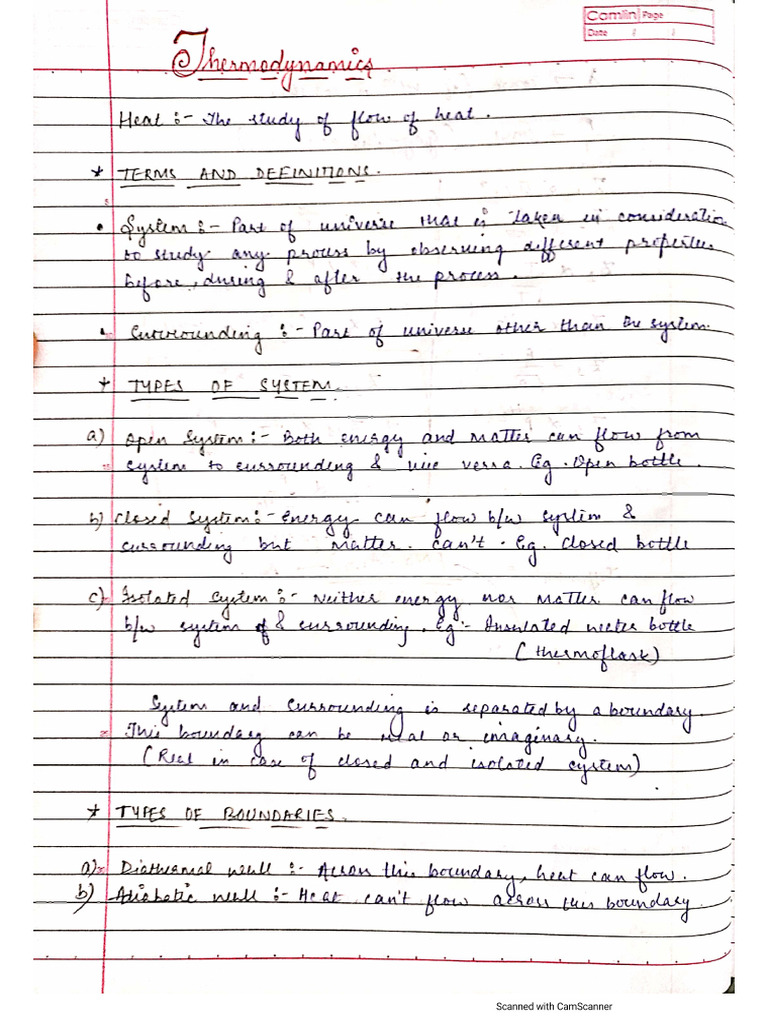 Camlin Page
Date / /
Thermodynamics
Heat :- The study of flow of heat.
* TERMS AND DEFINITIONS.
• System :- Part of universe that is taken in consideration
to study any process by observing different properties
before, during & after the process.
• Surrounding :- Part of universe other than the system.
* TYPES OF SYSTEM.
a) Open System :- Both energy and matter can flow from
system to surrounding & vice versa. Eg. Open bottle.
b) Closed System :- Energy can flow b/w system &
surrounding but matter can't. Eg. Closed bottle
c) Isolated System :- Neither energy nor matter can flow
b/w system & surrounding. Eg :- Insulated water bottle
(thermoflask)
System and surrounding is separated by a boundary.
This boundary can be real or imaginary.
(Real in case of closed and isolated system)
* TYPES OF BOUNDARIES.
a) Diathermal wall :- Across this boundary, heat can flow.
b) Adiabatic wall :- Heat can't flow across this boundary.
Scanned with CamScanner